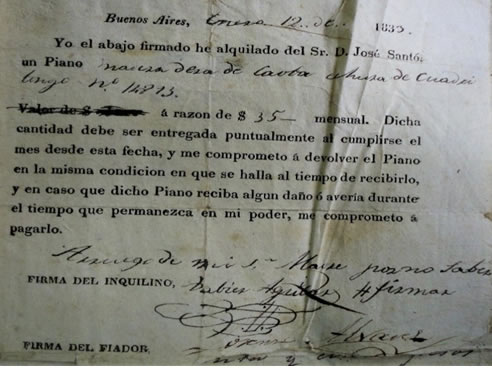 Buenos Aires, Enero 12 de 1835.
Yo el abajo firmado he alquilado del Sr. D. José Santó,
un Piano madera de Caoba de
N.º 14813.
Valor de $ á razon de $ 35 mensual. Dicha
cantidad debe ser entregada puntualmente al cumplirse el
mes desde esta fecha, y me comprometo á devolver el Piano
en la misma condicion en que se halla al tiempo de recibirlo,
y en caso que dicho Piano reciba algun daño ó avería durante
el tiempo que permanezca en mi poder, me comprometo á
pagarlo.
A ruego de mi Sª Madre por no saber
FIRMA DEL INQUILINO, firmar
FIRMA DEL FIADOR